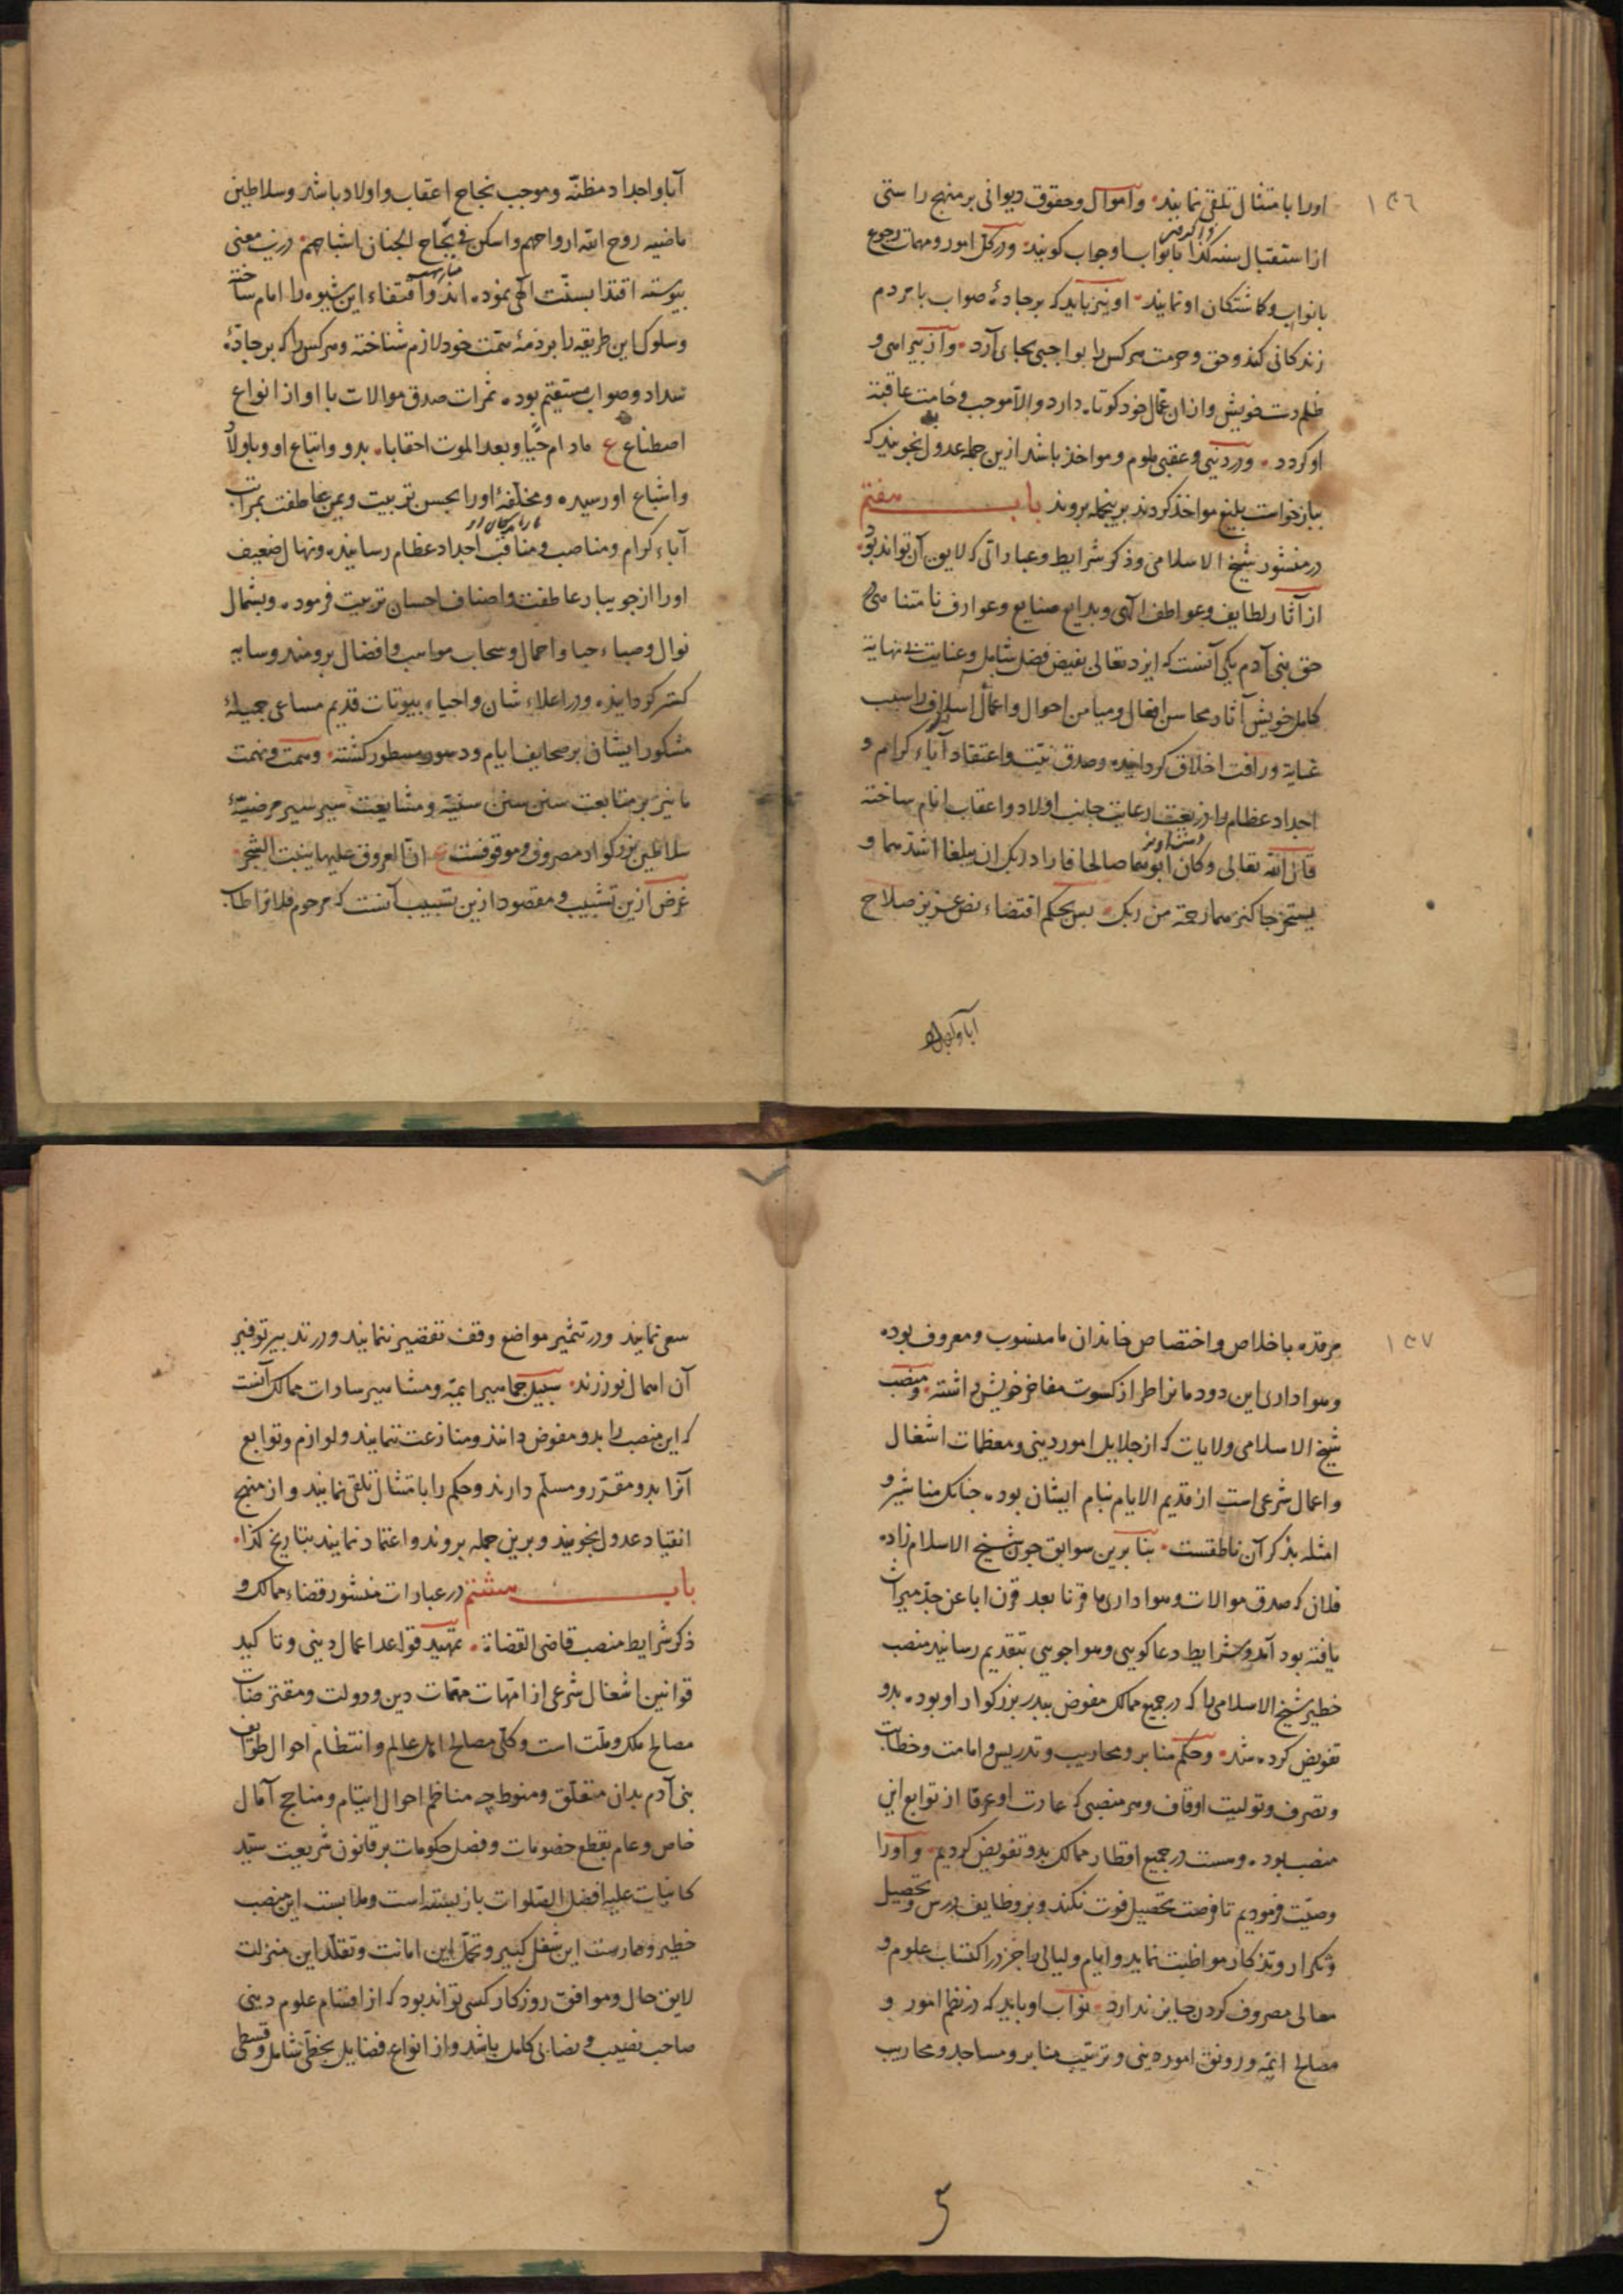 ١٣٦
اورا بامتثال تلقی نمایند وامو‌ال وحقوق دیوانی بر منهج راستی
از استقبال سنه کذا بانواب او جواب کویند ودر کل امور ومهمات رجوع
بانواب وکماشتکان او نمایند اونیز باید که بر جادهٔ صواب با مردم
زندکانی کند وحق وحرمت هرکس را بواجبی بجای آرد واز بیراهی و
ظلم دست خویش وازان عمال خود کوتاه دارد والا موجب وخامت عاقبت
او کردد ودر دنیی وعقبی ملوم ومواخذ باشد ازین جمله عدول نجویند که
ببازخواست بلیغ مواخذ کردند برینجمله بروند باب هفتم
در منشور شیخ الاسلامی وذکر شرایط وعباراتی که لایق آن تواند بود
از آثار لطایف وعواطف الهی وبدایع صنایع وعوارف نامتناهی در
حق بنی آدم یکی آنست که ایزد تعالی بفیض فضل شامل وعنایت بی نهایة
کامل خویش آثار محاسن افعال ومیامن احوال واعمال اسلاف را سبب
عنایة ورافت اخلاق کردانیده وصدق نیت واعتقاد آباء کرام و
اجداد عظام را ذریعت رعایت جانب اولاد واعقاب انام ساخته
قال الله تعالی وکان ابوهما صالحا فاراد ربک ان یبلغا اشدهما و
یستخرجا کنزهما رحمة من ربک پس بحکم اقتضاء نص عزیز صلاح
آبا واجداد
آبا واجداد مظنّه وموجب نجاح اعقاب واولاد باشد وسلاطین
ماضیه روح الله ارواحهم واسکن فی الجنان اشباحهم درین معنی
پیوسته اقتدا بسنّت الهی نموده اند واقتفاء این شیوه را امام ساخته
وسلوک این طریقه را بر ذمهٔ همّت خود لازم شناخته وهرکس را که بر جادهٔ
سداد وصواب مستقیم بوده ثمرات صدق موالات با او از انواع
اصطناع ع مادام حیّا وبعد الموت احقابا بدو واتباع او وباولاد
واشیاع او رسیده ومخلفهٔ اورا بحسن تربیت ویمن عاطفت بمراتب
آباء کرام ومناصب ومناقب اجداد عظام رسانیده ونهال ضعیف
اورا از جویبار عاطفت واصناف احسان تربیت فرموده وبشمال
نوال وصباء حبا واجمال وسحاب مواهب وافضال برومند وسایه
کستر کردانیده ودر اعلاء شان واحیاء بیوتات قدیم مساعی جمیلهٔ
مشکور ایشان بر صحایف ایام ودهور مسطور کشته وهمت ونهمت
ما نیز بر متابعت سنن سنن سنیّه ومشایعت سیر سیر مرضیّهٔ
سلاطین بزرکوار مصروف وموقوفست ع ان العروق علیها ینبت الشجر
غرض ازین تشبیب ومقصود ازین تسبیب آنست که مرحوم فلان طاب
١٣٧
مرقده باخلاص واختصاص خاندان ما منسوب ومعروف بوده
وهواداری این دودمانرا طراز کسوت مفاخر خویش داشته ومنصب
شیخ الاسلامی ولایات که از جلایل امور دینی ومعظمات اشغال
واعمال شرعی است از قدیم الایام بنام ایشان بوده جنانک مناشیر و
امثله بذکر آن ناطقست بنا برین سوابق جون شیخ الاسلام زاده
فلان که صدق موالات وهواداری ما قرنا بعد قرن ابا عن جدّ میراث
یافته بود آمد وشرایط دعاکویی وهواجویی بتقدیم رسانید منصب
خطیر شیخ الاسلامی را که در جمیع ممالک مفوض بپدر بزرکوار او بوده بدو
تفویض کرده شد وحکم منابر ومحاریب وتدریس وامامت وخطابت
وتصرف وتولیت اوقاف وهر منصبی که عمارت او عرفا از توابع این
منصب بوده وهست در جمیع اقطار ممالک بدو تفویض کردیم واورا
وصیّت فرمودیم تا فرصت تحصیل فوت نکند وبر وظایف درس وتحصیل
وتکرار وتذکار مواظبت نماید وایام ولیالی را جز در اکتساب علوم و
معالی مصروف کردن جایز ندارد نواب او باید که در نظم امور و
مصالح ائمّه ورونق امور دینی وترتیب منابر ومساجد ومحاریب
سعی نمایند ودر تثمیر مواضع وقف تقصیر ننمایند ودر تدبیر توفیر
آن اهمال نورزند سبیل جماهیر ایمّه ومشاهیر سادات ممالک آنست
که این منصب را بدو مفوض دانند ومنازعت ننمایند ولوازم وتوابع
آنرا بدو مقرّر ومسلّم دارند وحکم را بامتثال تلقی نمایند واز منهج
انقیاد عدول نجویند وبرین جمله بروند واعتماد نمایند بتاریخ کذا
باب هشتم در عبارات منشور قضاء ممالک و
ذکر شرایط منصب قاضی القضاة تمهید قواعد اعمال دینی وتاکید
قوانین اشغال شرعی از امّهات مهمّات دین ودولت ومفترضات
مصالح ملک وملّت است وکلّی مصالح اهل عالم وانتظام احوال طوایف
بنی آدم بدان متعلّق ومنوط چه مناظم احوال ایتام ومناجح آمال
خاص وعام بقطع خصومات وفصل حکومات بر قانون شریعت سیّد
کاینات علیه افضل الصّلوات باز بسته است وملابست این منصب
خطیر وممارست این شغل کبیر وتحمّل این امانت وتقلّد این منزلت
لایق حال وموافق روزکار کسی تواند بود که از اقسام علوم دینی
صاحب نصیب ونصابی کامل باشد واز انواع فضایل بحظّی شامل وقسطی